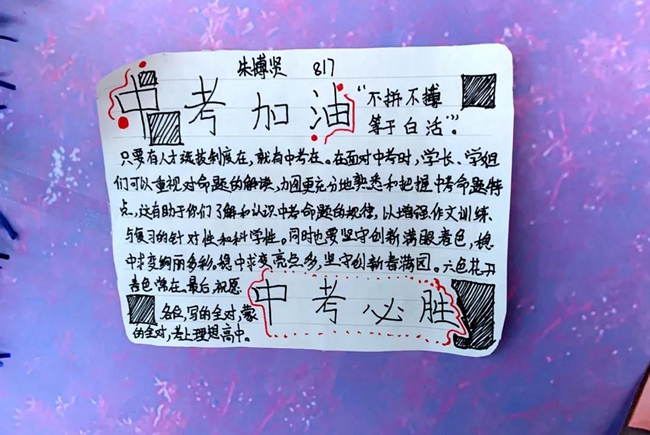 朱博贤 817
中考加油
“不拼不搏
等于白活”。
只要有人才选拔制度在，就有中考在。在面对中考时，学长、学姐
们可以重视对命题的解读，力图更充分地熟悉和把握中考命题特
点，这有助于你们了解和认识中考命题的规律，以增强作文训练
与复习的针对性和科学性。同时也要坚守创新满眼春色，稳
中求变绚丽多彩。稳中求变亮点多，坚守创新春满园。六色花开
春色常在。最后，祝愿
各位，写的全对，蒙
的全对，考上理想高中。
中考必胜